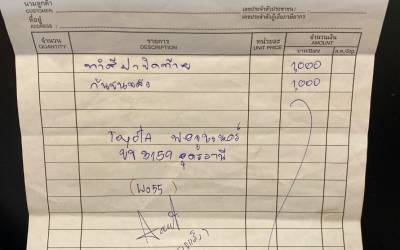 นามลูกค้า
CUSTOMER
เลขประจำตัวประชาชน/
ที่อยู่
ADDRESS
เลขประจำตัวผู้เสียภาษีอากร
จำนวน
QUANTITY
รายการ
DESCRIPTION
หน่วยละ
UNIT PRICE
จำนวนเงิน
AMOUNT
บาท/Baht
ส.ต./Stg.
ทำสีฝาปิดท้าย 1,000
กันชนหลัง 1,000
ToyotA ฟอจูนเนอร์
8159 อุดรธานี